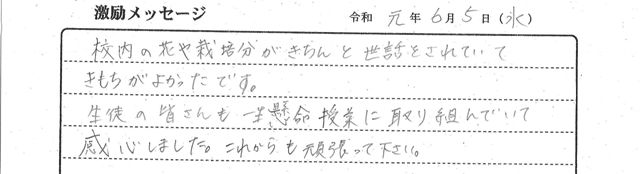 激励メッセージ 令和 元年 6月 5日(水)
校内の花や栽培分がきちんと世話をされていて
きもちがよかったです。
生徒の皆さんも一生懸命授業に取り組んでいて
感心しました。これからも頑張って下さい。